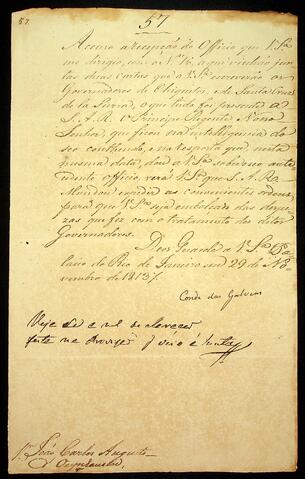 57.
57
Accuso a recepção do Officio que V.Sa
me dirigio, com o No 16, a que vinhão juntas
as duas cartas que a V.Sa escreverão os
Governadores de Chiquitos, e de Santa Cruz
de la Sierra, o que tudo foi presente a
S.A.R. O Principe Regente Nosso
Senhor, que ficou na intelligencia do
seo conthéudo, e na resposta que nesta
mesma data, dou a V.Sa sobre o ante
cedente Officio, verá V.Sa que S.A.R.
Mandou expedir as convenientes ordens
para que V.Sa seja embolsado das despe
zas que fez com o tratamento dos ditos
Governadores.
Deos Guarde a V.Sa Pa
lacio do Rio de Janeiro em 29 de No
vembro de 1813.
Conde das Galveas
Snr João Carlos Augusto
d'Oeynhausen.